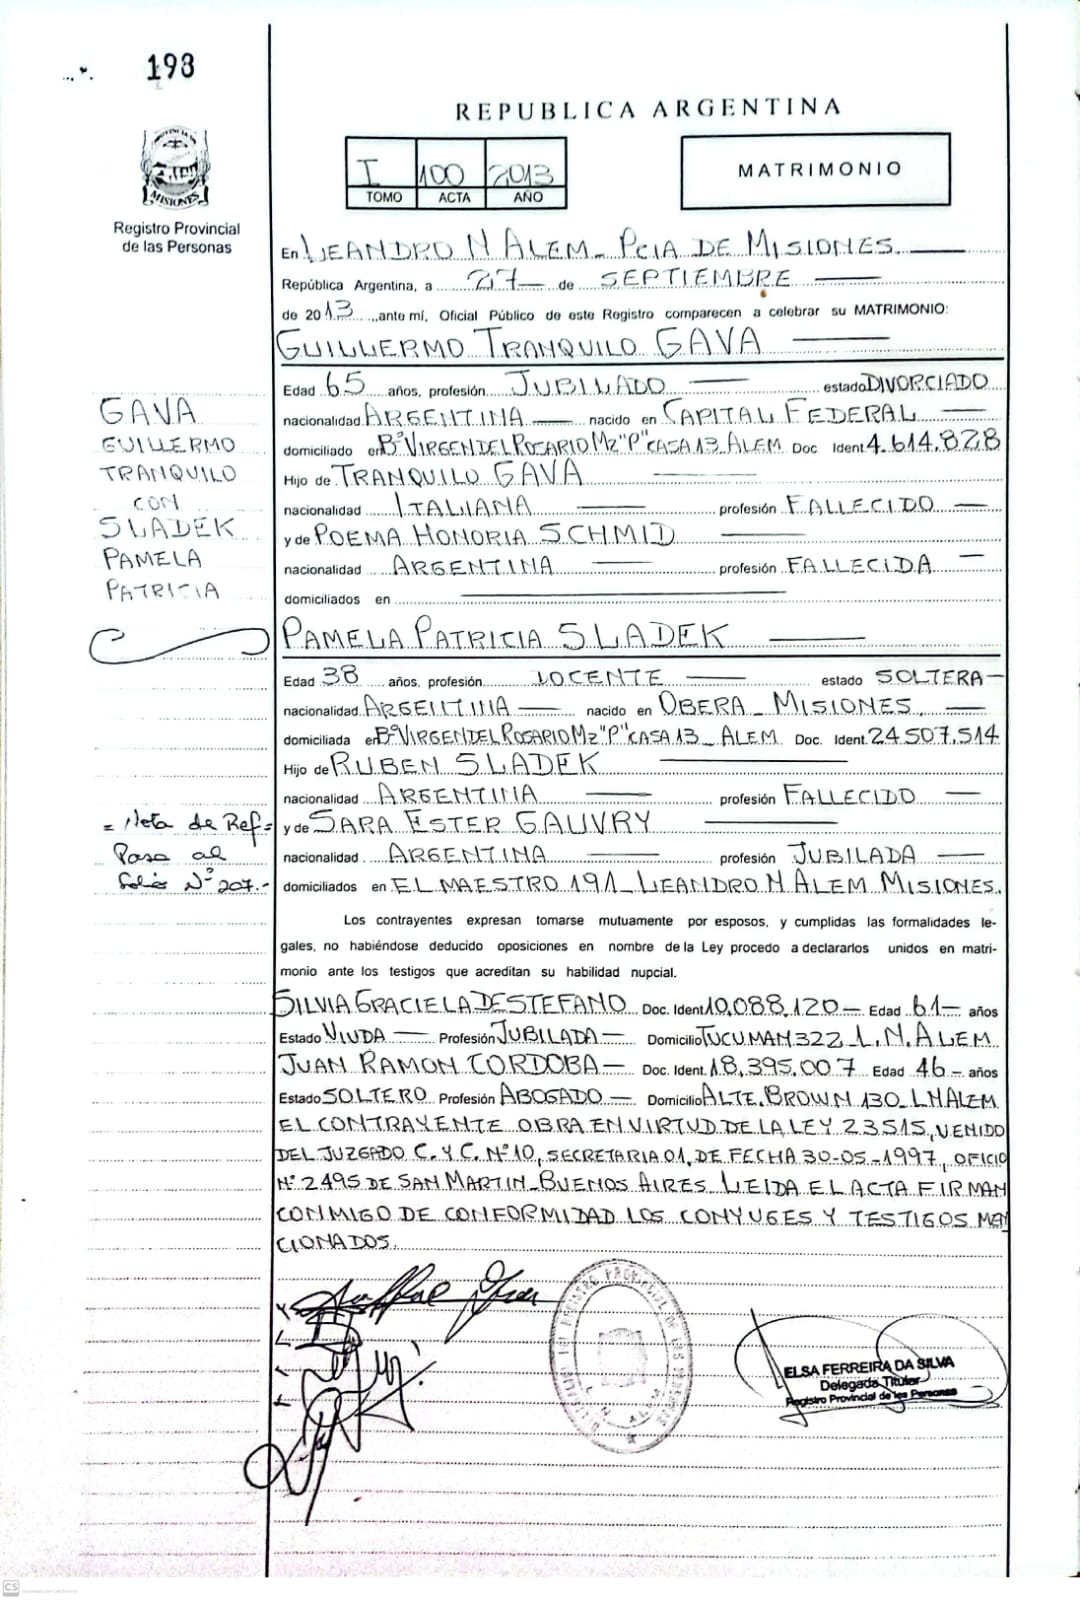 193
PROVINCIA DE
MISIONES
Registro Provincial
de las Personas
REPUBLICA ARGENTINA
I 100 2013
TOMO ACTA AÑO
MATRIMONIO
En LEANDRO N ALEM - PCIA DE MISIONES
República Argentina, a 27 de SEPTIEMBRE
de 2013, ante mí, Oficial Público de este Registro comparecen a celebrar su MATRIMONIO:
GUILLERMO TRANQUILO GAVA
Edad 65 años, profesión JUBILADO estado DIVORCIADO
nacionalidad ARGENTINA nacido en CAPITAL FEDERAL
domiciliado en Bº VIRGEN DEL ROSARIO Mz "P" CASA 13 ALEM Doc Ident. 4.614.828
Hijo de TRANQUILO GAVA
nacionalidad ITALIANA profesión FALLECIDO
y de POEMA HONORIA SCHMID
nacionalidad ARGENTINA profesión FALLECIDA
domiciliados en
PAMELA PATRICIA SLADEK
Edad 38 años, profesión DOCENTE estado SOLTERA
nacionalidad ARGENTINA nacido en OBERA - MISIONES
domiciliada en Bº VIRGEN DEL ROSARIO Mz "P" CASA 13 - ALEM Doc. Ident. 24.507.514
Hijo de RUBEN SLADEK
nacionalidad ARGENTINA profesión FALLECIDO
y de SARA ESTER GAUVRY
nacionalidad ARGENTINA profesión JUBILADA
domiciliados en EL MAESTRO 191 - LEANDRO N ALEM MISIONES.
Los contrayentes expresan tomarse mutuamente por esposos, y cumplidas las formalidades le-
gales, no habiéndose deducido oposiciones en nombre de la Ley procedo a declararlos unidos en matri-
monio ante los testigos que acreditan su habilidad nupcial.
SILVIA GRACIELA DESTEFANO Doc. Ident 10.088.120 Edad 61 años
Estado VIUDA Profesión JUBILADA Domicilio TUCUMAN 322 L.N.ALEM
JUAN RAMON CORDOBA Doc. Ident. 18.395.007 Edad 46 años
Estado SOLTERO Profesión ABOGADO Domicilio ALTE. BROWN 130 LNALEM
EL CONTRAYENTE OBRA EN VIRTUD DE LA LEY 23515, VENIDO
DEL JUZGADO C. Y C. Nº 10, SECRETARIA 01, DE FECHA 30-05-1997, OFICIO
Nº 2495 DE SAN MARTIN - BUENOS AIRES. LEIDA EL ACTA FIRMAN
CONMIGO DE CONFORMIDAD LOS CONYUGES Y TESTIGOS MEN
CIONADOS.
GAVA
GUILLERMO
TRANQUILO
CON
SLADEK
PAMELA
PATRICIA
= Nota de Ref=
Pasa al
folio Nº 207.-
ELSA FERREIRA DA SILVA
Delegada Titular
Registro Provincial de las Personas
CS